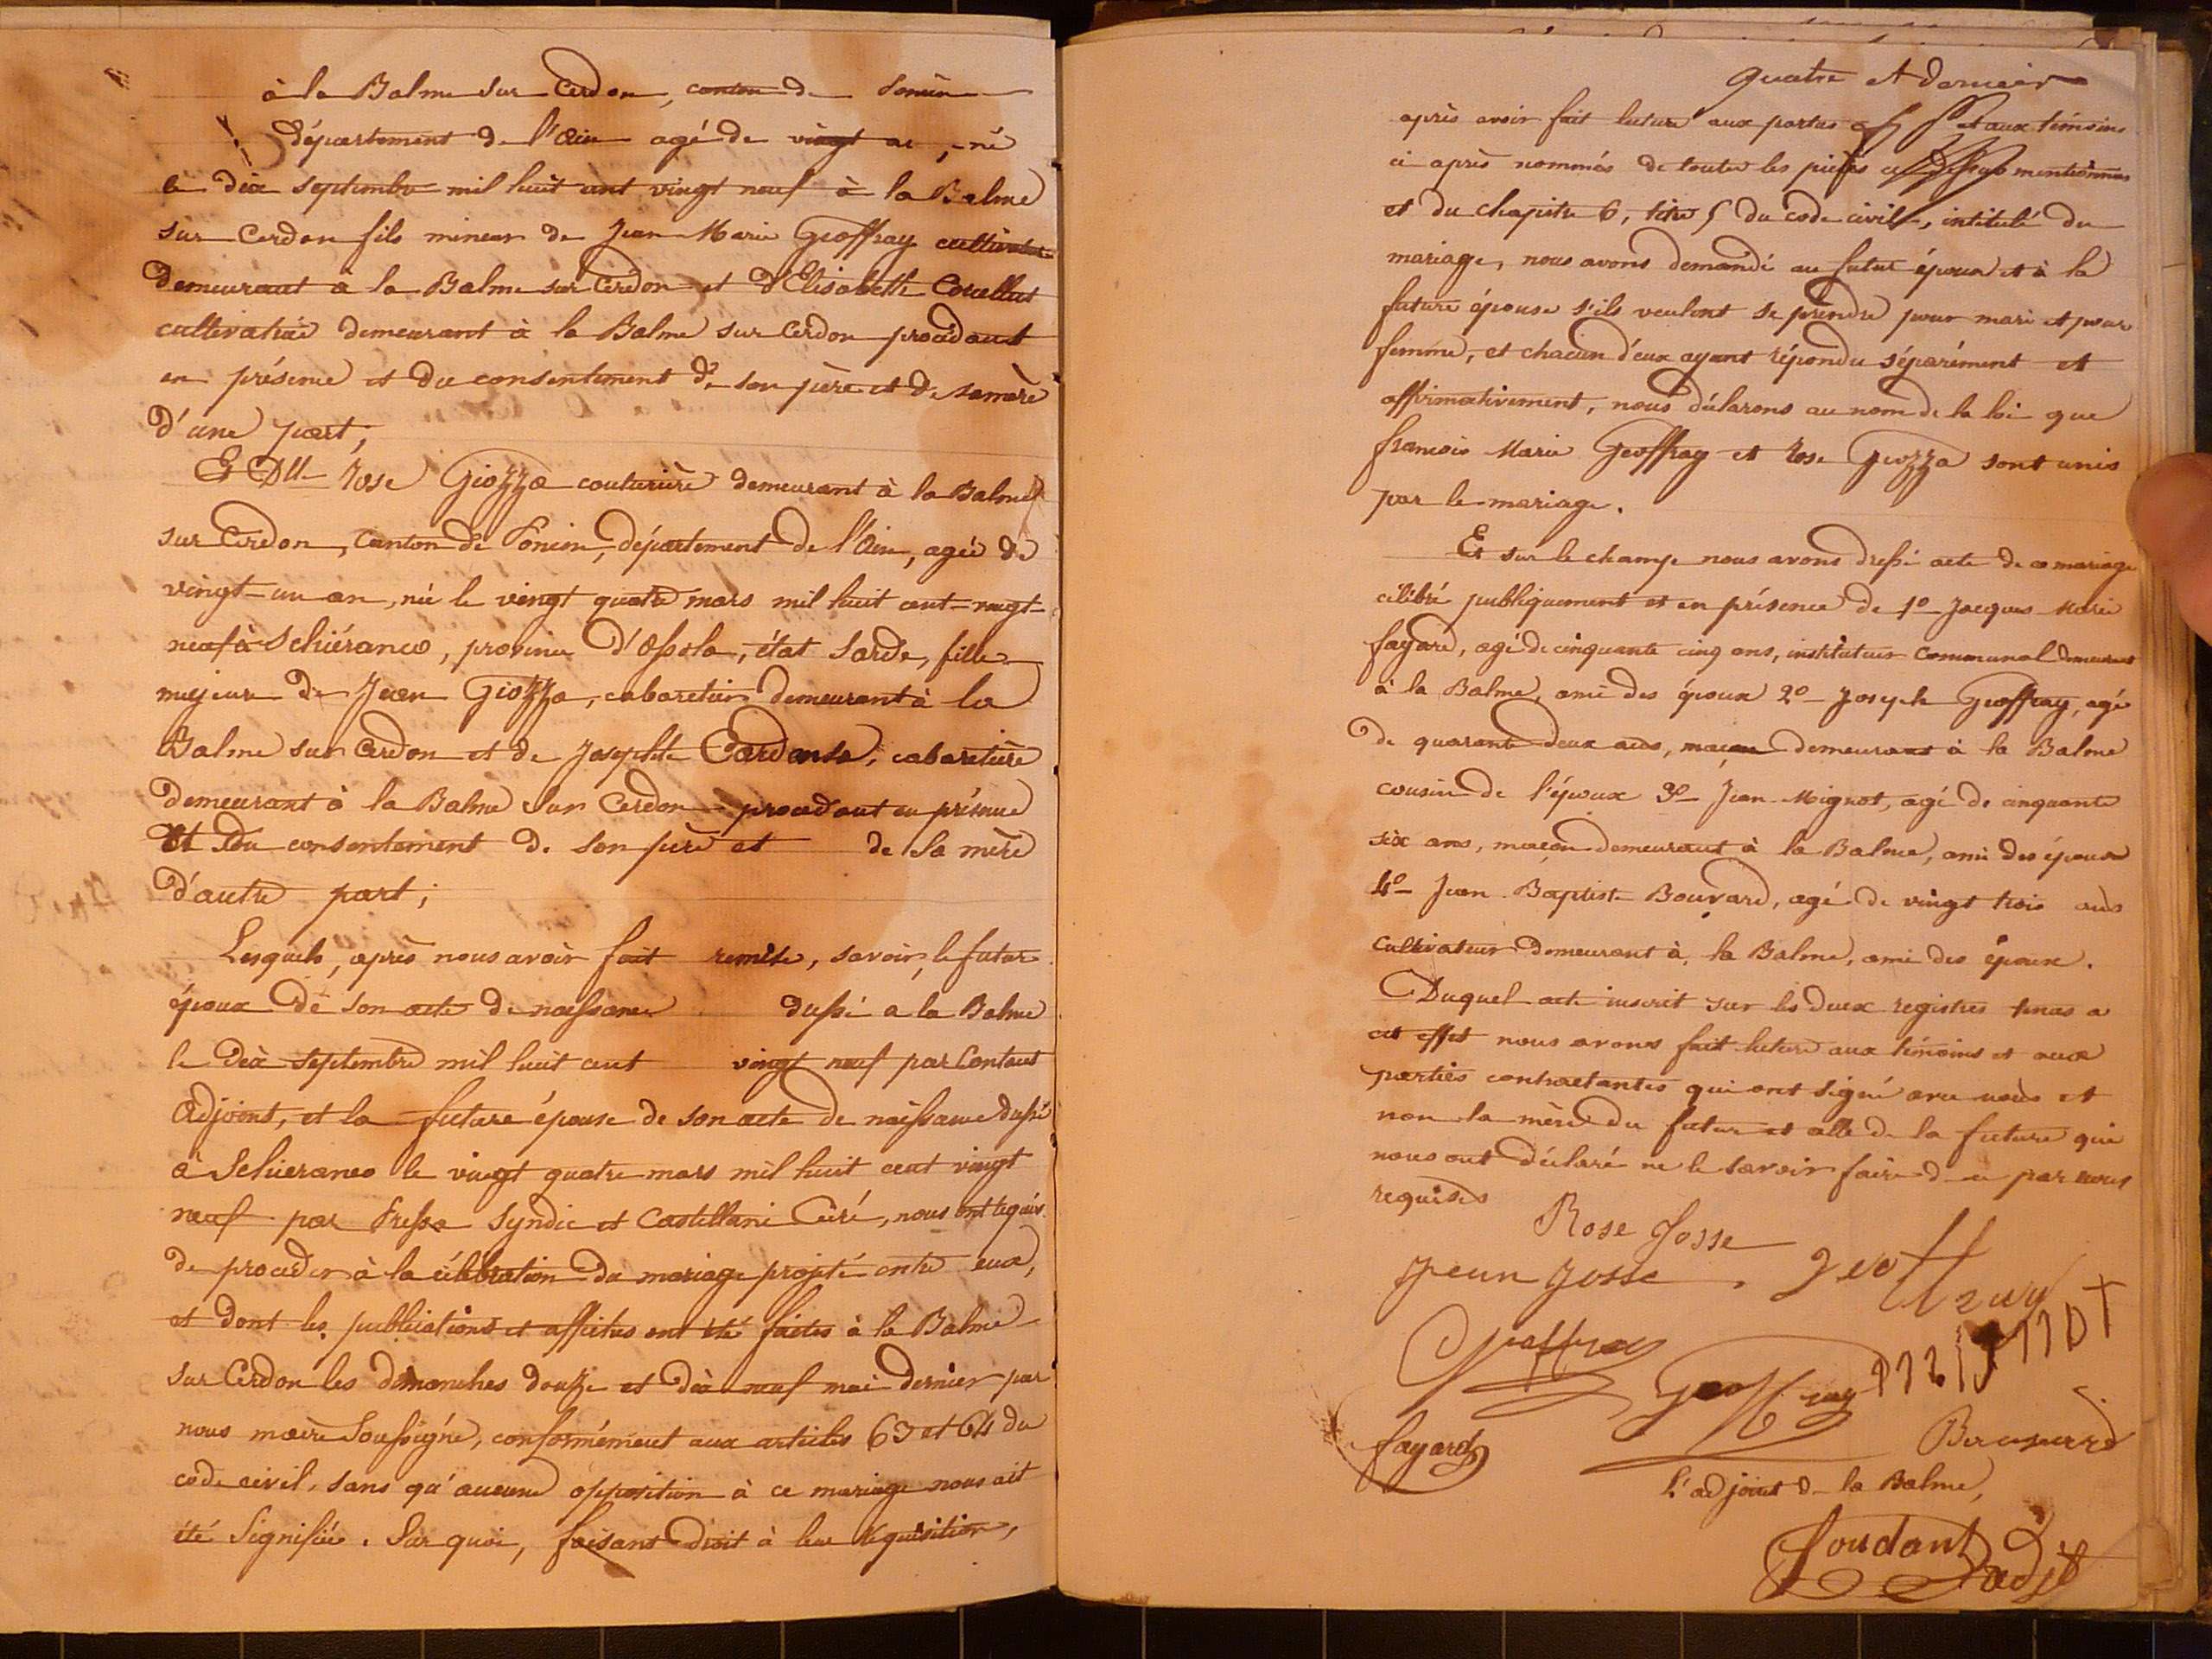 à la Balme sur Cerdon, canton de Poncin
département de l'Ain agé de vingt an, né
le dix septembre mil huit cent vingt neuf à la Balme
sur Cerdon fils mineur de Jean Marie Geoffray cultivateur
demeurant a la Balme sur Cerdon et d'Elisabeth Convellut
cultivatrice demeurant à la Balme sur Cerdon procédant
en présence et du consentement de son père et de sa mère
d'une part,
Et Dlle Rose Giozza couturière demeurant à la Balme
sur Cerdon, canton de Poncin, département de l'Ain, agée de
vingt-un an, née le vingt quatre mars mil huit cent-vingt-
neuf à Schiéranco, province d'Ossola, état Sarde, fille
majeure de Jean Giozza, cabaretier demeurant à la
Balme sur Cerdon et de Josephte Cardonsa, cabaretière
demeurant à la Balme sur Cerdon procédant en présence
et du consentement de son père et de sa mère
d'autre part;
Lesquels, après nous avoir fait remise, savoir, le futur
époux de son acte de naissance dressé a la Balme
le dix septembre mil huit cent vingt neuf par
adjoint, et la future épouse de son acte de naissance dressé
à Schieranco le vingt quatre mars mil huit cent vingt
neuf par Syndic et Castellani Curé, nous ont requis
de procéder à la célébration du mariage projeté entre eux,
et dont les publications et affiches ont été faites à la Balme
sur Cerdon les dimanches douze et dix neuf mai dernier par
nous maire soussigné, conformément aux articles 63 et 64 du
code civil, sans qu'aucune opposition à ce mariage nous ait
été signifiée. Sur quoi, faisant droit à leur réquisition,
quatre et dernier
après avoir fait lecture aux parties et aux témoins
ci après nommés de toutes les pièces ci dessus mentionnées
et du chapitre 6, titre 5 du code civil, intitulé du
mariage, nous avons demandé au futur époux et à la
future épouse s'ils veulent se prendre pour mari et pour
femme, et chacun d'eux ayant répondu séparément et
affirmativement, nous déclarons au nom de la loi que
françois Marie Geoffray et Rose Giozza sont unis
par le mariage.
Et sur le champ nous avons dressé acte de ce mariage
célébré publiquement et en présence de 1º Jacques Marie
fayard, agé de cinquante cinq ans, instituteur communal demeurant
à la Balme, ami des époux 2º Joseph Geoffray, agé
de quarante deux ans, maçon demeurant à la Balme
cousin de l'époux 3º Jean Mignot, agé de cinquante
six ans, maçon demeurant à la Balme, ami des époux
4º Jean Baptiste Bouvard, agé de vingt trois ans
cultivateur demeurant à la Balme, ami des époux.
Duquel acte inscrit sur les deux registres tenus a
cet effet nous avons fait lecture aux témoins et aux
parties contractantes qui ont signé avec nous et
non la mère du futur et celle de la future qui
nous ont déclaré ne le savoir faire de ce par nous
requises
Rose Josse
Jean Josse. geoffray
Geoffray
Geoffray MIGNOT
fayard Bouvard
L'adjoint de la Balme,
adjt